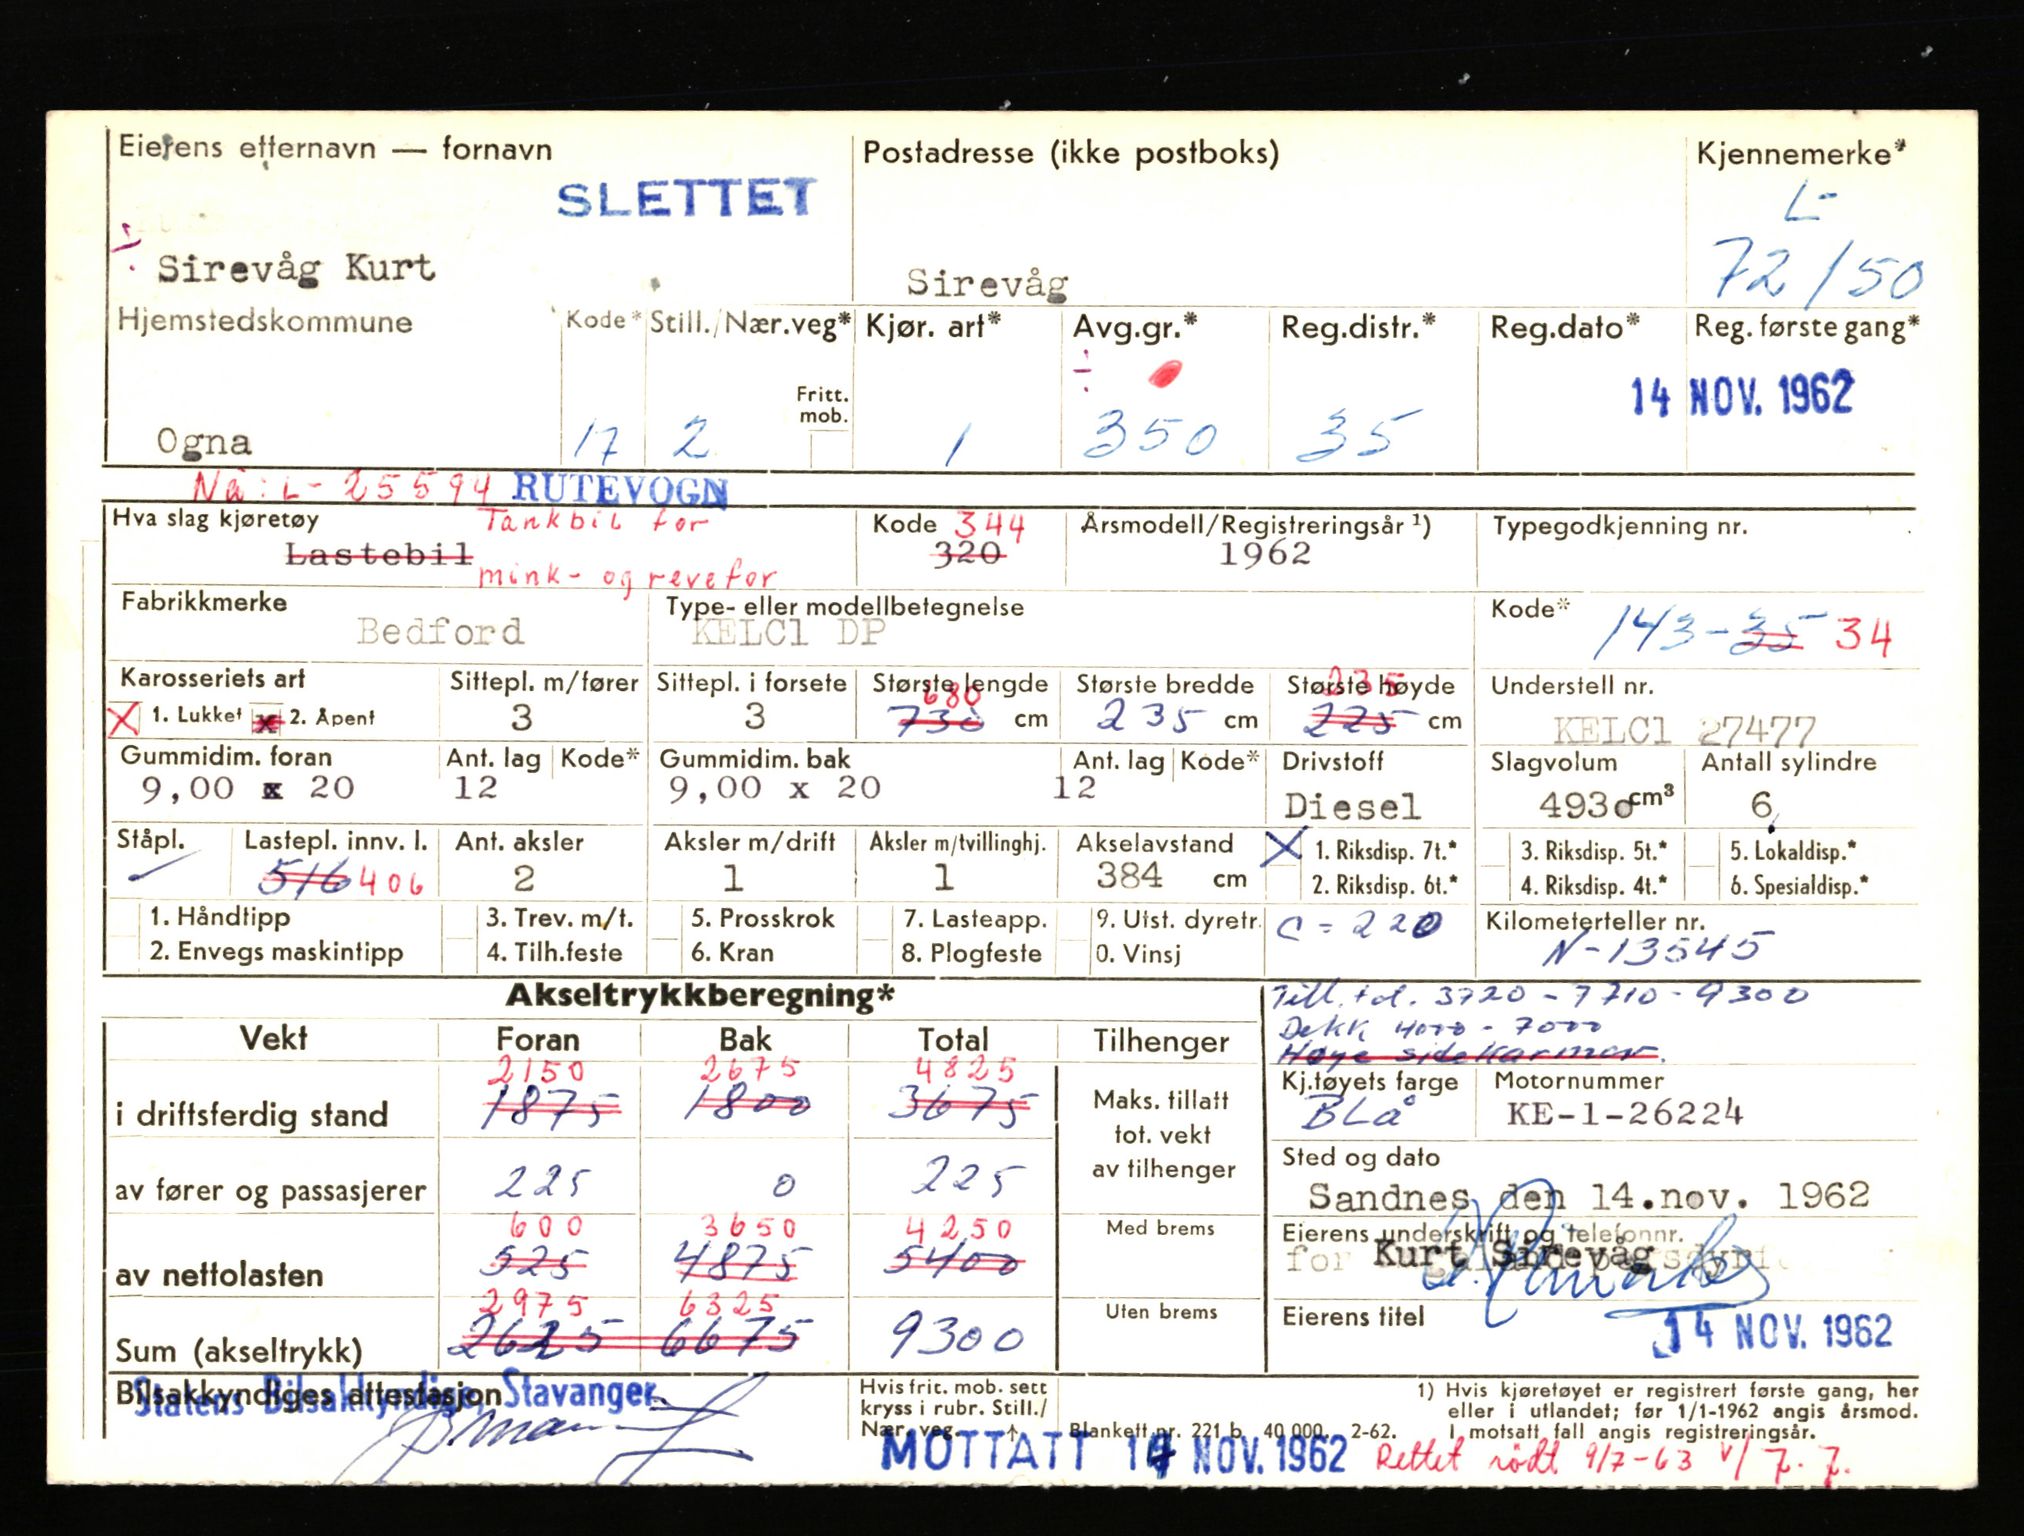 Eierens etternavn — fornavn Postadresse (ikke postboks) Kjennemerke*
SLETTET L-
Sirevåg Kurt Sirevåg 72150
Hjemstedskommune Kode* Still./Nær.veg* Kjør. art* Avg.gr.* Reg.distr.* Reg.dato* Reg. første gang*
14 NOV. 1962
Fritt. mob.
Ogna 17 2 1 350 35
Nå: L- 25594 RUTEVOGN
Hva slag kjøretøy Tankbil for Kode 344 Årsmodell/Registreringsår ¹) Typegodkjenning nr.
Lastebil 320 1962
mink- og revefor
Fabrikkmerke Type- eller modellbetegnelse Kode*
Bedford KELC1 DP 143-35 34
Karosseriets art Sittepl. m/fører Sittepl. i forsete Største lengde Største bredde Største høyde Understell nr.
680 235
X 1. Lukket x 2. Åpent 3 3 730 cm 235 cm 225 cm KELC1 27477
Gummidim. foran Ant. lag Kode* Gummidim. bak Ant. lag Kode* Drivstoff Slagvolum Antall sylindre
9,00 x 20 12 9,00 x 20 12 Diesel 4930 cm³ 6
Ståpl. Lastepl. innv. l. Ant. aksler Aksler m/drift Aksler m/tvillinghj. Akselavstand X 1. Riksdisp. 7t.* 3. Riksdisp. 5t.* 5. Lokaldisp.*
516 406 2 1 1 384 cm 2. Riksdisp. 6t.* 4. Riksdisp. 4t.* 6. Spesialdisp.*
1. Håndtipp 3. Trev. m/t. 5. Prosskrok 7. Lasteapp. 9. Utst. dyretr. C = 220 Kilometerteller nr.
2. Envegs maskintipp 4. Tilh.feste 6. Kran 8. Plogfeste 0. Vinsj N-13545
Akseltrykkberegning* Till. td. 3720 - 7710 - 9300
Vekt Foran Bak Total Tilhenger Dekk 4000 - 7000
Høye sidekarmer.
2150 2675 4825 Kj.tøyets farge Motornummer
i driftsferdig stand 1875 1800 3675 Maks. tillatt BLå KE-1-26224
tot. vekt
av tilhenger Sted og dato
av fører og passasjerer 225 0 225 Sandnes den 14.nov. 1962
600 3650 4250 Med brems Eierens underskrift og telefonnr.
av nettolasten 525 4875 5400 for Kurt Sirevåg
2975 6325 Uten brems Eierens titel
Sum (akseltrykk) 2625 6675 9300 14 NOV. 1962
Bilsakkyndiges attestasjon
Statens Bilsakkyndige, Stavanger.
Hvis frit. mob. sett
kryss i rubr. Still./
Nær. veg. ↑ Blankett nr. 221 b. 40 000. 2-62.
1) Hvis kjøretøyet er registrert første gang, her
eller i utlandet; før 1/1-1962 angis årsmod.
I motsatt fall angis registreringsår.
MOTTATT 14 NOV. 1962 Rettet rødt 9/7-63 v/ J. J.